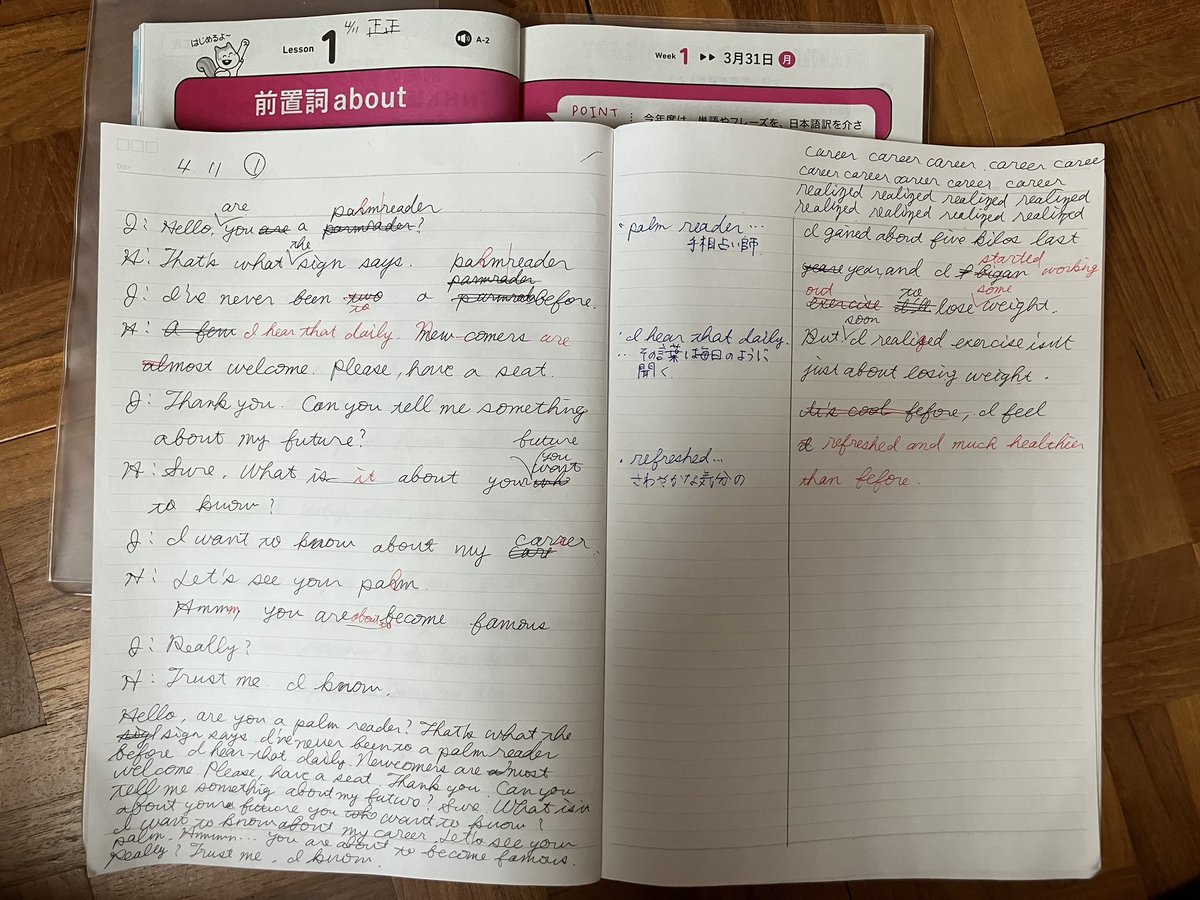 はじめるよ〜
Lesson 1
4/11 正正
A-2
前置詞about
Week 1 ▶▶ 3月31日 月
POINT
今年度は、単語やフレーズを、日本語訳を介さ
Date
4 11 ①
are palmreader
J: Hello, you are a parmrader?
the
H: That's what sign says. palmreader
parmrader
J: I've never been two to a before.
H: A few I hear that daily. New-comers are
almost welcome. Please, have a seat.
J: Thank you. Can you tell me something
about my future? future
you want
H: Sure. What is it about your
to know?
J: I want to know about my career.
care
H: Let's see your palm.
Hmmm, you are about to become famous
J: Really?
H: Trust me. I know.
Hello, are you a palm reader? That's what the
sign says. I've never been to a palm reader
before I hear that daily. Newcomers are most
welcome. Please, have a seat. Thank you. Can you
tell me something about my futuro? Sure. What is it
about your future you want to know?
I want to know about my career. Let's see your
palm. Hmmmm... you are about to become famous.
Really? Trust me. I know.
・palm reader…
手相占い師
・I hear that daily.
…その言葉は毎日のように
聞く.
・refreshed…
さわやかな気分の
career career career career caree
career career career career career
realized realized realized realized
realized realized realized realized
I ganed about five kilos last
started
year year and I began working
out to some
exercise lose weight.
soon
But I realized exercise isn't
just about losing weight.
it's cool fefore, I feel
refreshed and much healthier
than fefore.